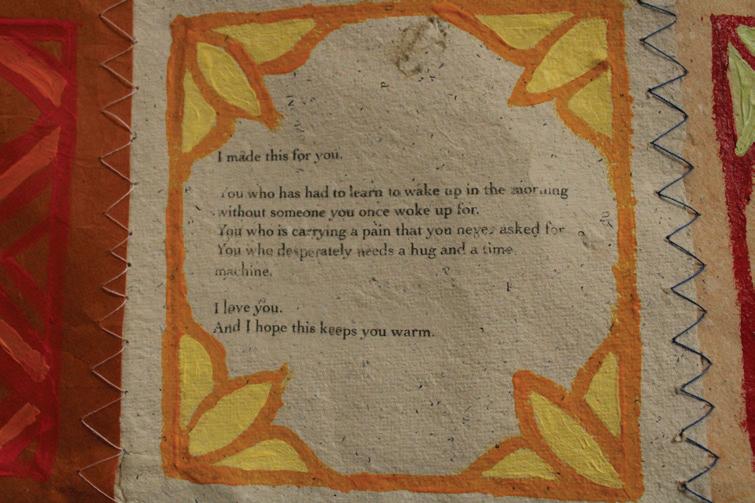 I made this for you.
You who has had to learn to wake up in the morning
without someone you once woke up for.
You who is carrying a pain that you never asked for
You who desperately needs a hug and a time
machine.
I love you.
And I hope this keeps you warm.